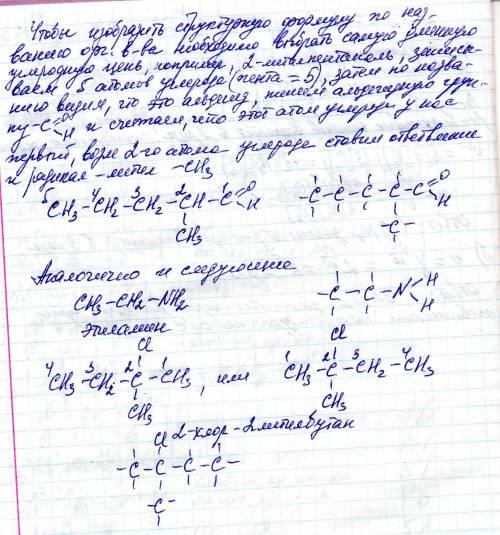 Чтобы изобразить структурную формулу по наз-
ванию орг. в-ва необходимо выбрать самую длинную
углеродную цепь, например, 2-метилпентаналь, записы-
ваем 5 атомов углерода (пента = 5), затем по назва-
нию видим, что это альдегид, пишем альдегидную груп-
пу -C=O H и считаем, что этот атом углерода у нас
первый, возле 2-го атома углерода ставим ответвление
и радикал - метил -CH3
5 CH3 - 4 CH2 - 3 CH2 - 2 CH - 1 C =O H
CH3
- C - C - C - C - C =O H
- C -
Аналогично и следующие
CH3 - CH2 - NH2
этиламин
- C - C - N H H
Cl Cl
4 CH3 - 3 CH2 - 2 C - 1 CH3 , или 1 CH3 - 2 C - 3 CH2 - 4 CH3
CH3 CH3
2-хлор-2метилбутан
Cl
- C - C - C - C -
- C -